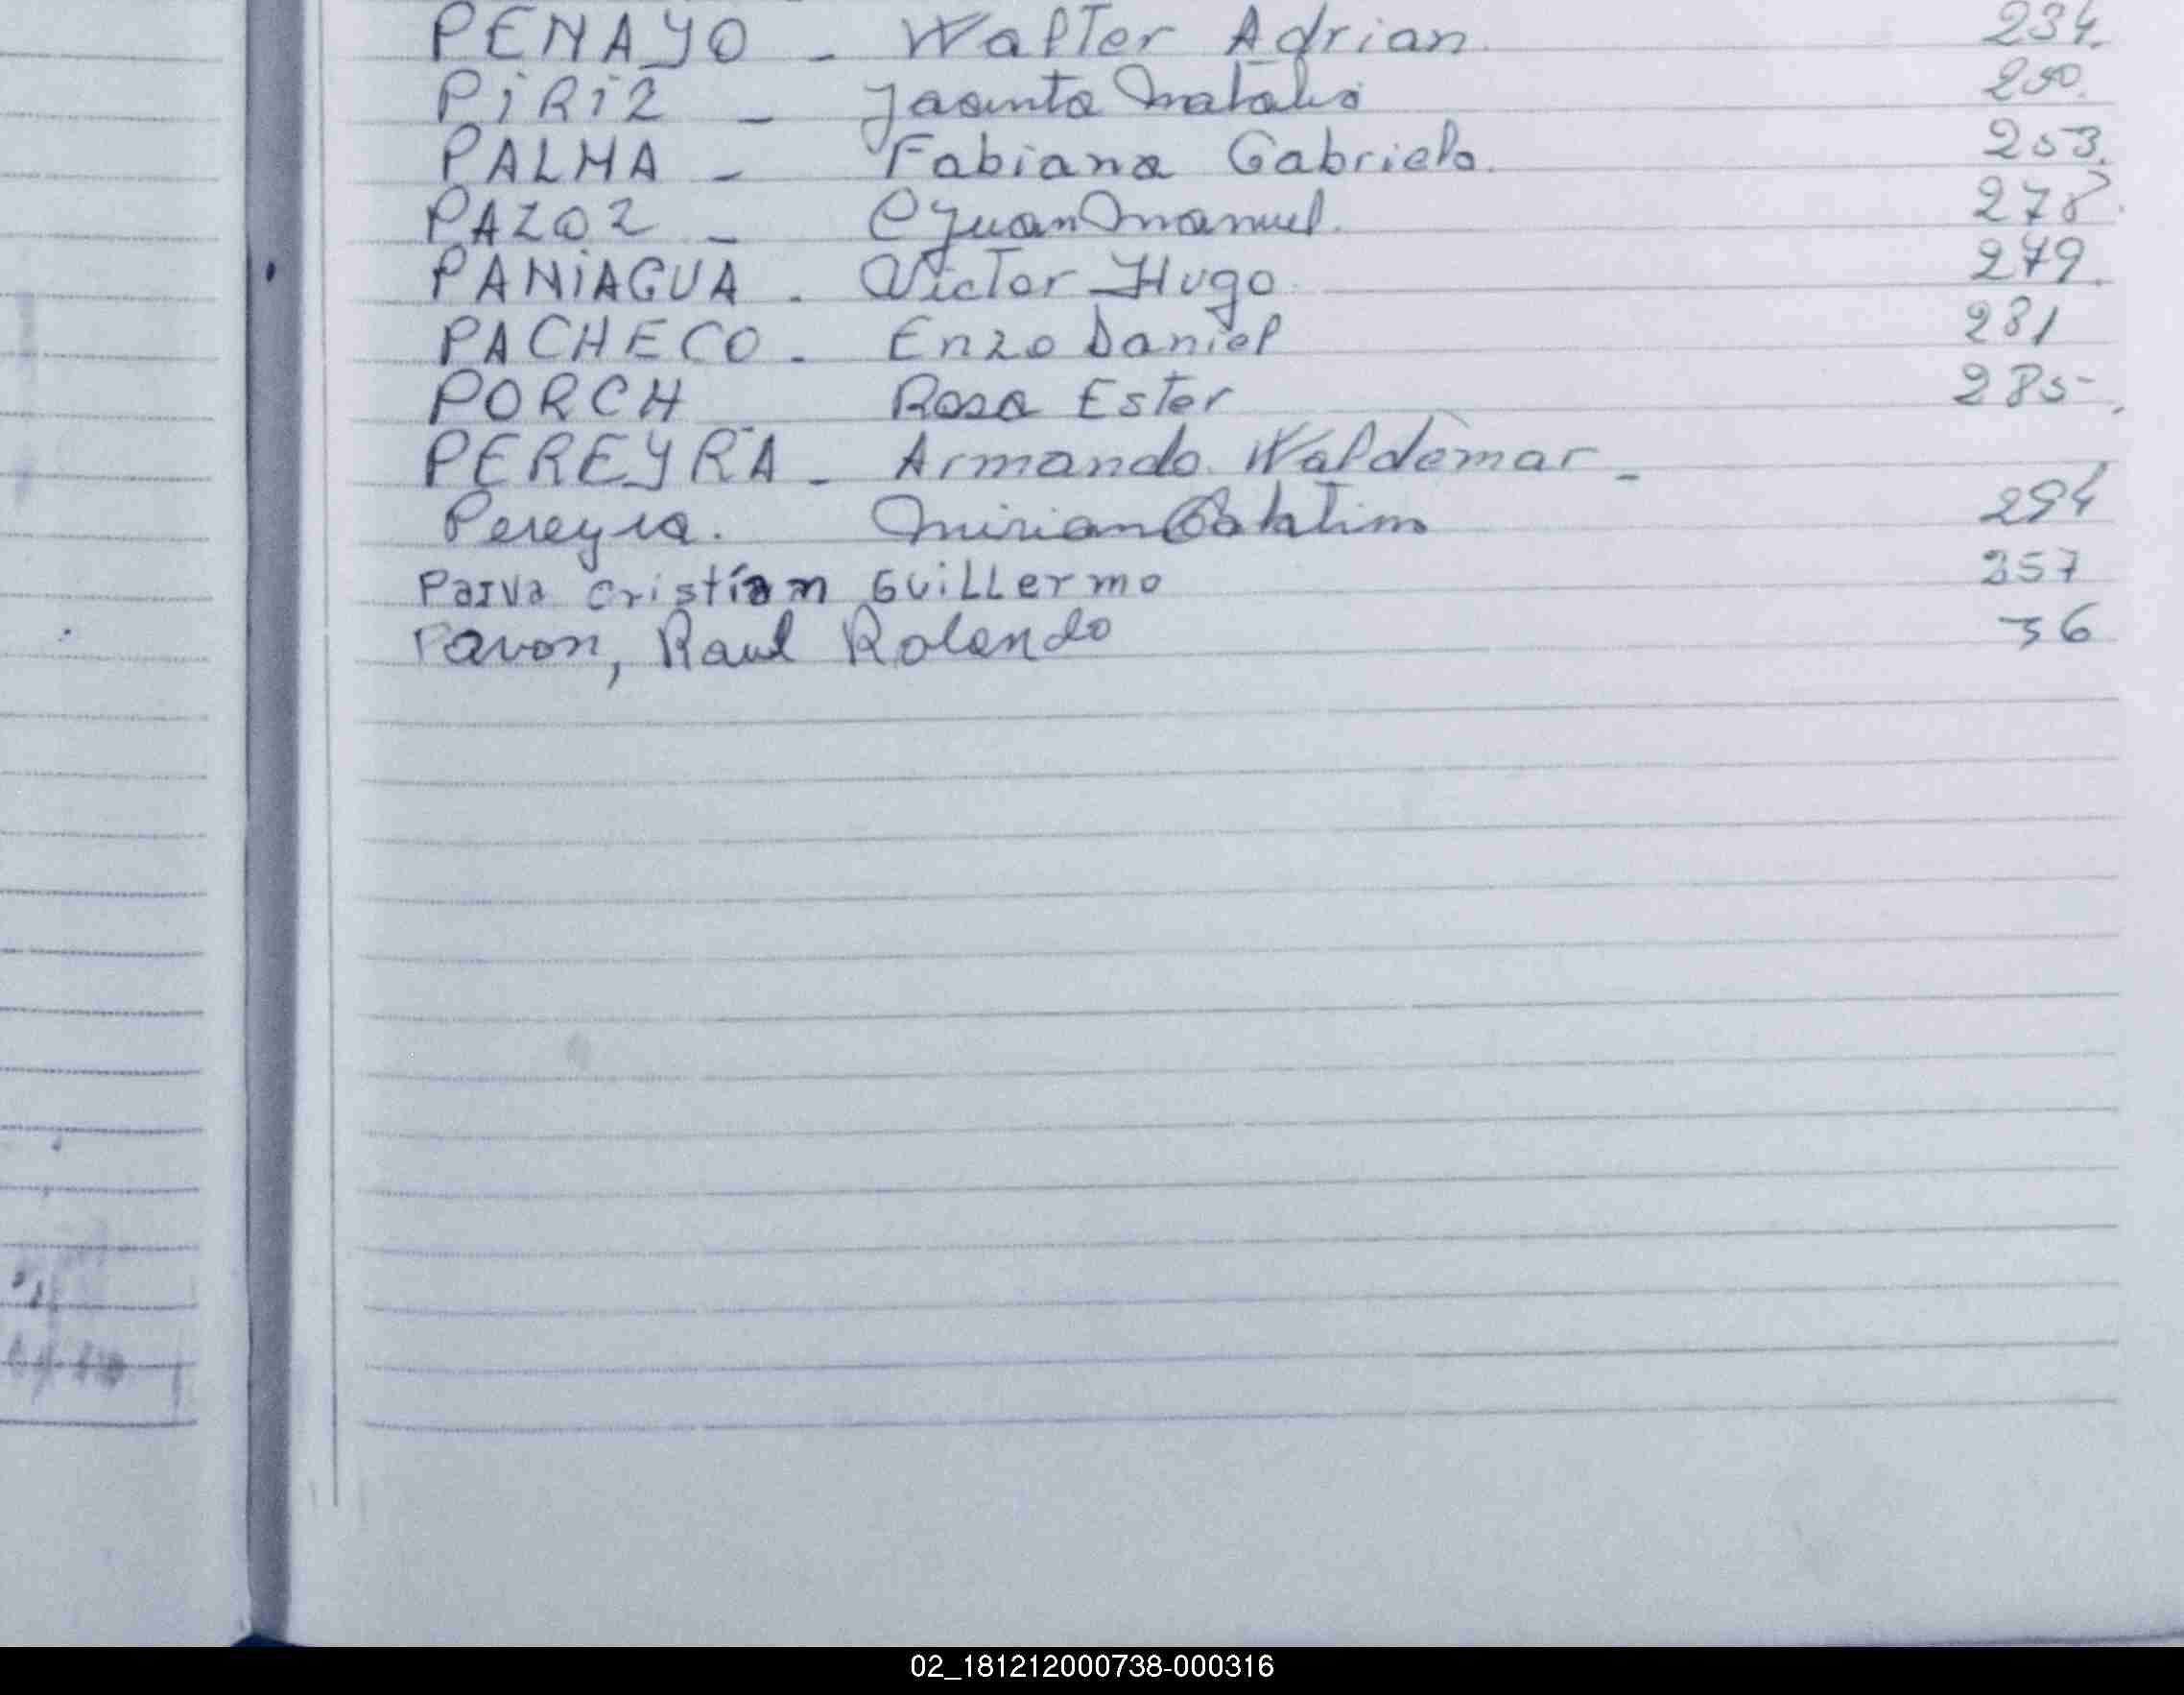 PENAYO - Walter Adrian. 234.
PiRiZ - Jacinto Natalio 250.
PALMA - Fabiana Gabriela. 253.
PAZOZ - Juan Manuel. 278.
PANiAGUA. Victor Hugo 279.
PACHECO. Enzo Daniel 281
PORCH Rosa Ester 285.
PEREYRA - Armando Waldemar -
Pereyra. Mirian 294
Paiva cristian GuiLLermo 257
Pavon, Raul Rolando 36
02_181212000738-000316